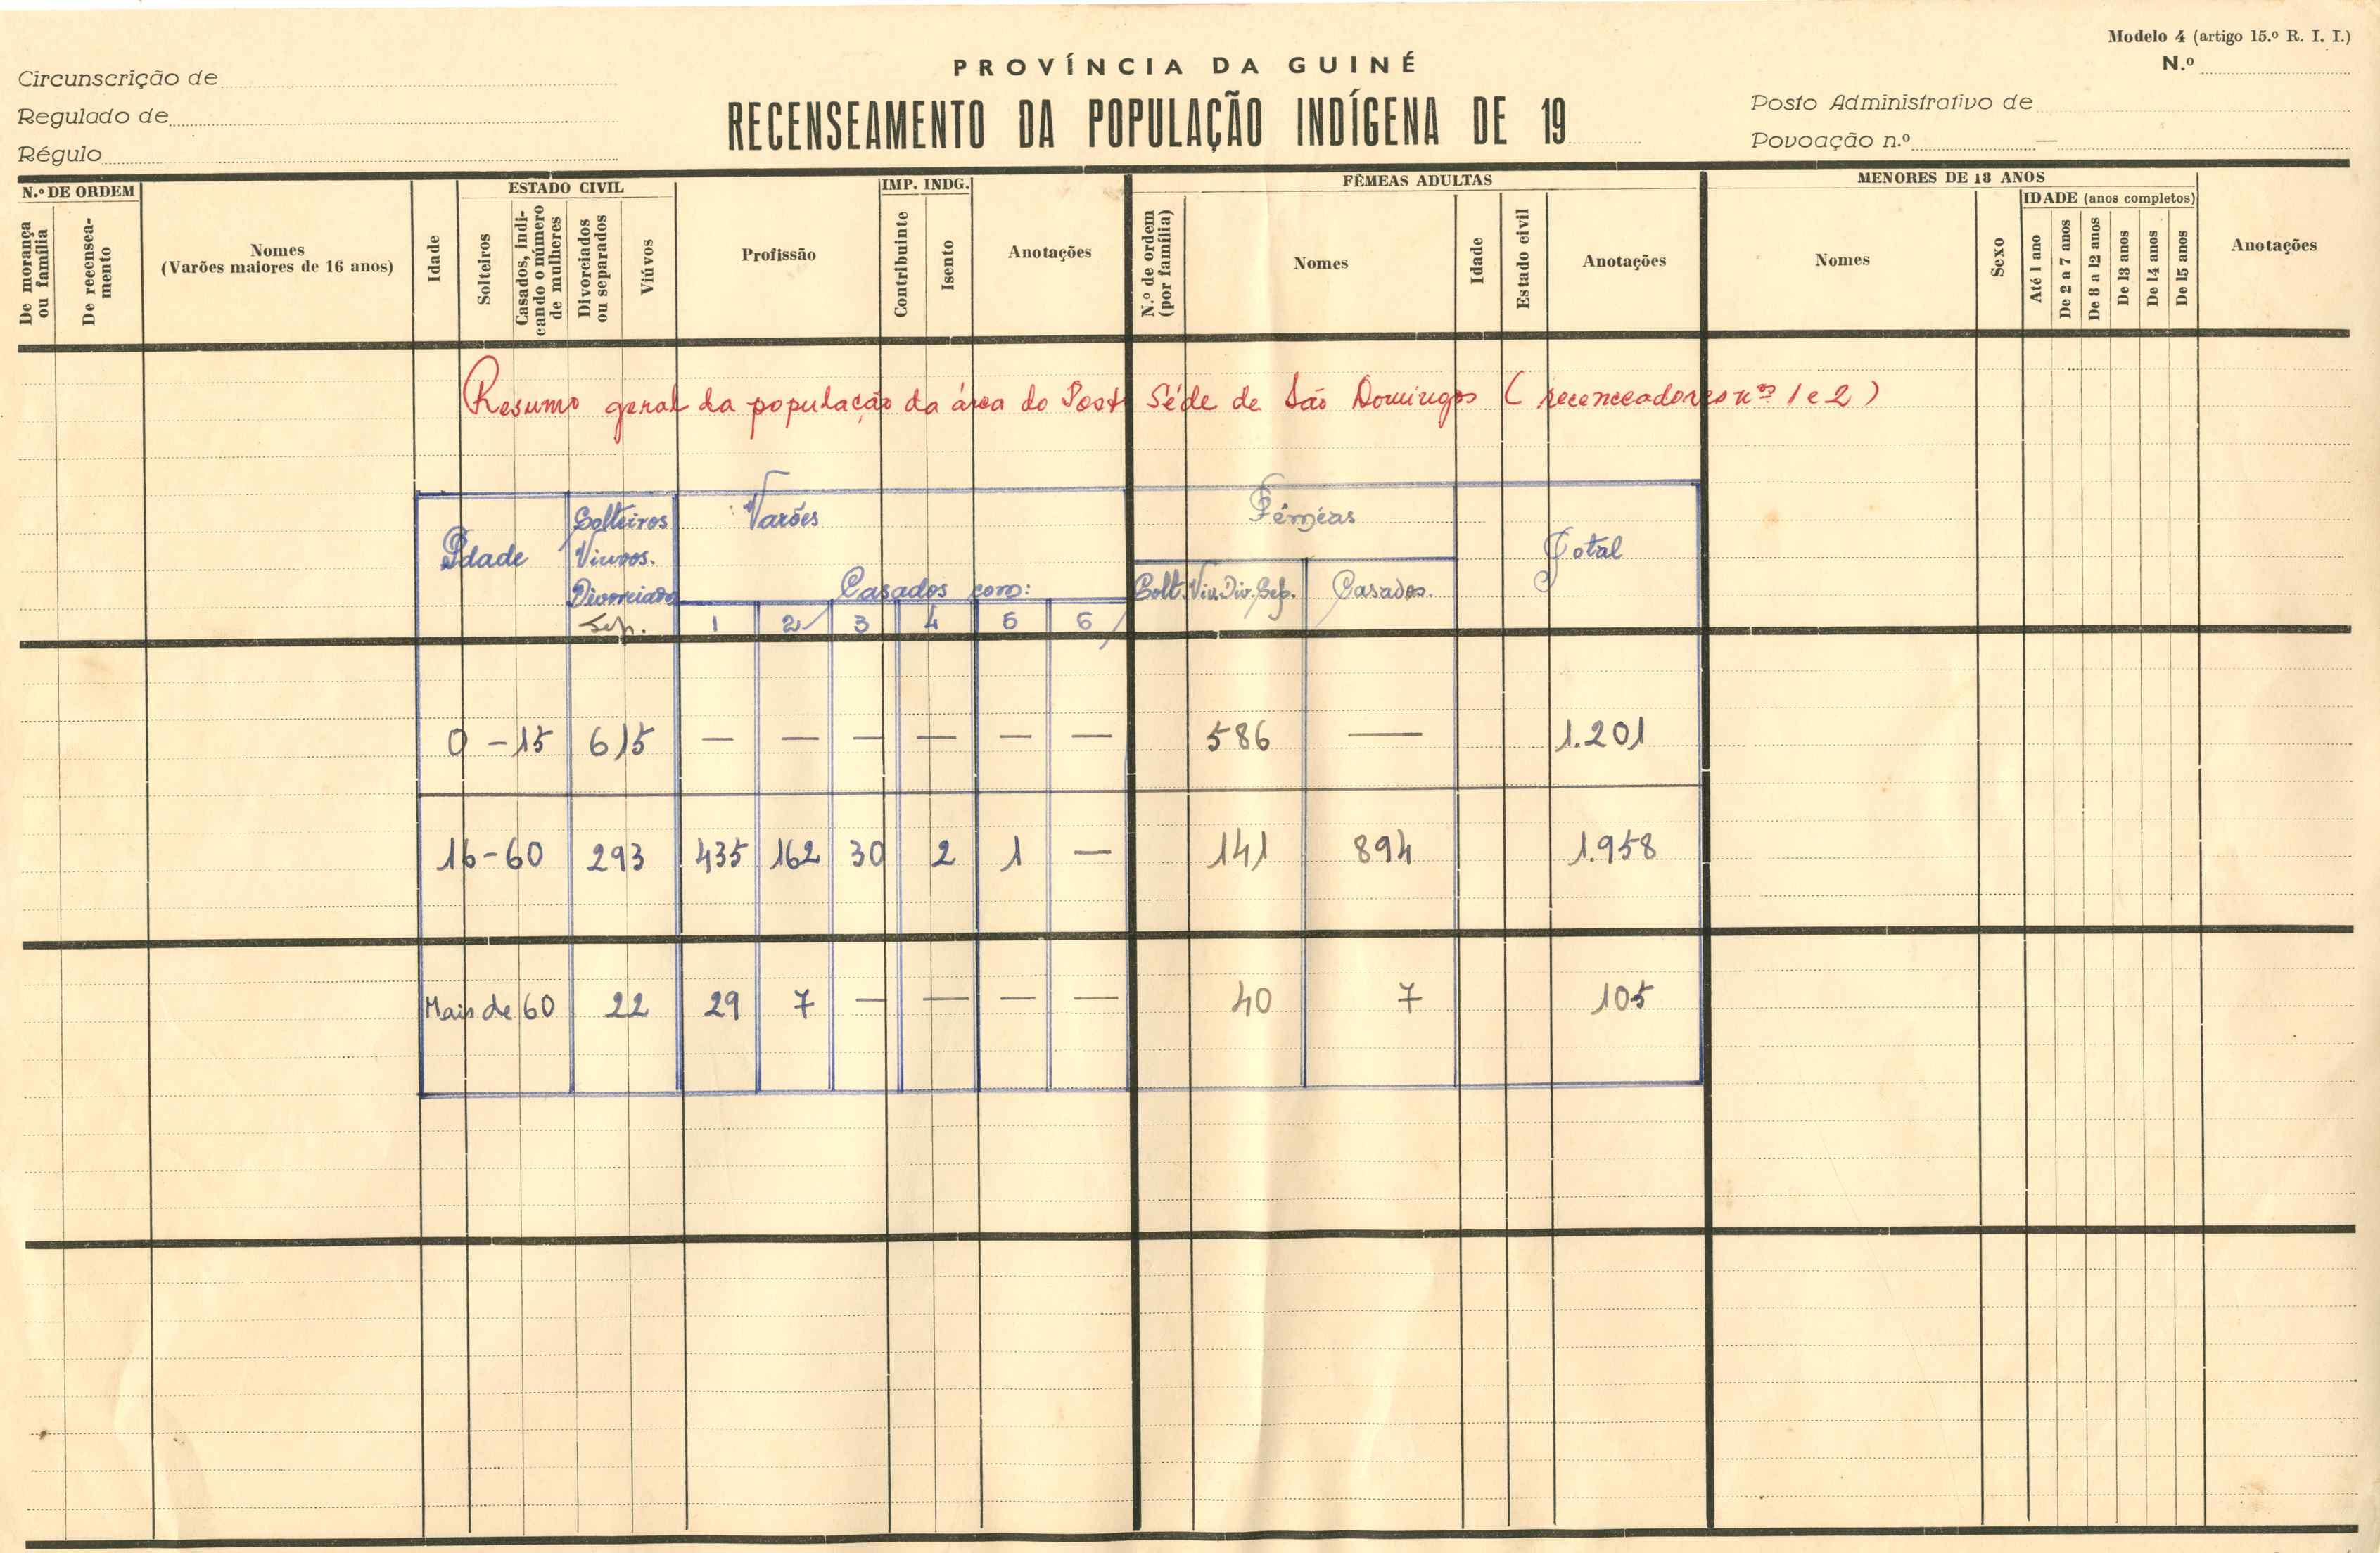 Modelo 4 (artigo 15.º R. I. I.)
N.º
PROVÍNCIA DA GUINÉ
RECENSEAMENTO DA POPULAÇÃO INDÍGENA DE 19
Circunscrição de
Regulado de
Régulo
Posto Administrativo de
Povoação n.º —
N.º DE ORDEM
De morança ou família
De recenseamento
Nomes
(Varões maiores de 16 anos)
Idade
ESTADO CIVIL
Solteiros
Casados, indicando o número de mulheres
Divorciados ou separados
Viúvos
Profissão
IMP. INDG.
Contribuinte
Isento
Anotações
FÊMEAS ADULTAS
N.º de ordem (por família)
Nomes
Idade
Estado civil
Anotações
MENORES DE 18 ANOS
Nomes
Sexo
IDADE (anos completos)
Até 1 ano
De 2 a 7 anos
De 8 a 12 anos
De 13 anos
De 14 anos
De 15 anos
Anotações
Resumo geral da população da área do Posto Séde de São Domingos (recenceadores nºs 1 e 2)
Idade
Solteiros
Viuvos.
Divorciado
Sep.
Varões
Casados com:
1 2 3 4 5 6
Fêmeas
Solt. Viu. Div. Sep.
Casados.
Total
0 - 15 615 — — — — — — 586 — 1.201
16 - 60 293 435 162 30 2 1 — 141 894 1.958
Mais de 60 22 29 7 — — — — 40 7 105